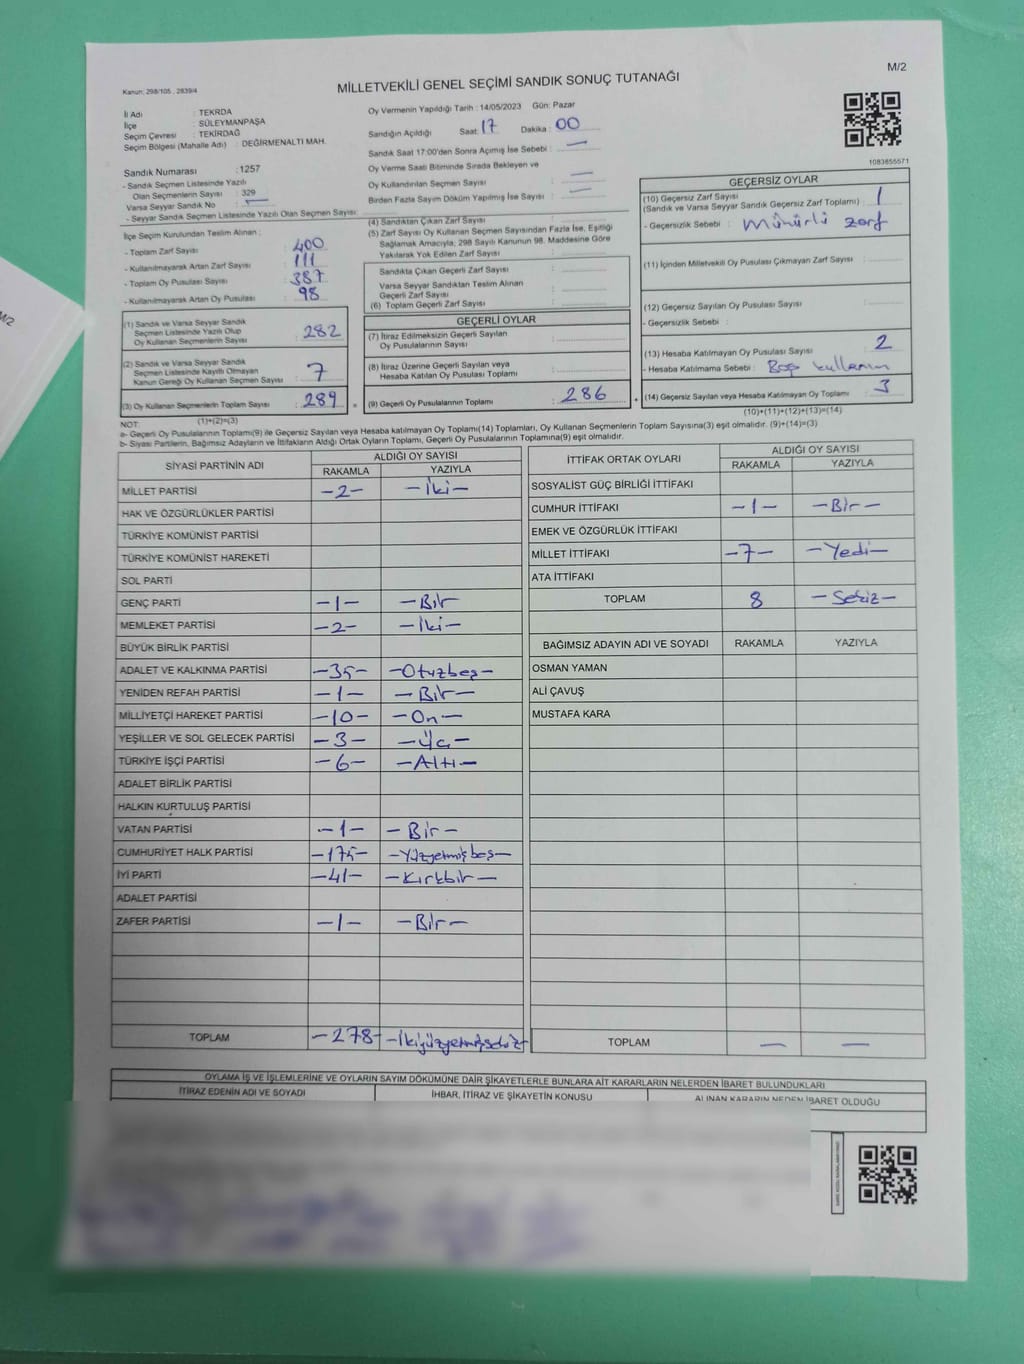 M/2
Kanun: 298/105 , 2839/4
MİLLETVEKİLİ GENEL SEÇİMİ SANDIK SONUÇ TUTANAĞI
İl Adı : TEKRDA
İlçe : SÜLEYMANPAŞA
Seçim Çevresi : TEKİRDAĞ
Seçim Bölgesi (Mahalle Adı) : DEĞİRMENALTI MAH.
Oy Vermenin Yapıldığı Tarih : 14/05/2023 Gün: Pazar
Sandığın Açıldığı Saat: 17 Dakika : 00
Sandık Saat 17:00'den Sonra Açımış İse Sebebi : —
Oy Verme Saati Bitiminde Sırada Bekleyen ve
Oy Kullandırılan Seçmen Sayısı : —
Birden Fazla Sayım Döküm Yapılmış İse Sayısı : —
1083655571
Sandık Numarası : 1257
- Sandık Seçmen Listesinde Yazılı
Olan Seçmenlerin Sayısı : 329
Varsa Seyyar Sandık No : —
- Seyyar Sandık Seçmen Listesinde Yazılı Olan Seçmen Sayısı:
İlçe Seçim Kurulundan Teslim Alınan ;
- Toplam Zarf Sayısı : 400
- Kullanılmayarak Artan Zarf Sayısı : 111
- Toplam Oy Pusulası Sayısı : 387
- Kullanılmayarak Artan Oy Pusulası : 98
(1) Sandık ve Varsa Seyyar Sandık
Seçmen Listesinde Yazılı Olup
Oy Kullanan Seçmen Sayısı : 282
(2) Sandık ve Varsa Seyyar Sandık
Seçmen Listesinde Kayıtlı Olmayan
Kanun Gereği Oy Kullanan Seçmen Sayısı : 7
(3) Oy Kullanan Seçmenlerin Toplam Sayısı : 289
(1)+(2)=(3)
(4) Sandıktan Çıkan Zarf Sayısı :
(5) Zarf Sayısı Oy Kullanan Seçmen Sayısından Fazla İse, Eşitliği
Sağlamak Amacıyla, 298 Sayılı Kanunun 98. Maddesine Göre
Yakılarak Yok Edilen Zarf Sayısı :
Sandıkta Çıkan Geçerli Zarf Sayısı :
Varsa Seyyar Sandıktan Teslim Alınan
Geçerli Zarf Sayısı :
(6) Toplam Geçerli Zarf Sayısı :
GEÇERLİ OYLAR
(7) İtiraz Edilmeksizin Geçerli Sayılan
Oy Pusulalarının Sayısı :
(8) İtiraz Üzerine Geçerli Sayılan veya
Hesaba Katılan Oy Pusulası Toplamı :
= (9) Geçerli Oy Pusulalarının Toplamı : 286
GEÇERSİZ OYLAR
(10) Geçersiz Zarf Sayısı
(Sandık ve Varsa Seyyar Sandık Geçersiz Zarf Toplamı) : 1
- Geçersizlik Sebebi : Mühürlü zarf
(11) İçinden Milletvekili Oy Pusulası Çıkmayan Zarf Sayısı :
(12) Geçersiz Sayılan Oy Pusulası Sayısı :
- Geçersizlik Sebebi :
(13) Hesaba Katılmayan Oy Pusulası Sayısı : 2
- Hesaba Katılmama Sebebi : Boş kullanım
+ (14) Geçersiz Sayılan veya Hesaba Katılmayan Oy Toplamı : 3
(10)+(11)+(12)+(13)=(14)
NOT:
a- Geçerli Oy Pusulalarının Toplamı(9) ile Geçersiz Sayılan veya Hesaba Katılmayan Oy Toplamı(14) Toplamları, Oy Kullanan Seçmenlerin Toplam Sayısına(3) eşit olmalıdır. (9)+(14)=(3)
b- Siyasi Partilerin, Bağımsız Adayların ve İttifakların Aldığı Ortak Oyların Toplamı, Geçerli Oy Pusulalarının Toplamına(9) eşit olmalıdır.
SİYASİ PARTİNİN ADI ALDIĞI OY SAYISI
RAKAMLA YAZIYLA
MİLLET PARTİSİ -2- -İki-
HAK VE ÖZGÜRLÜKLER PARTİSİ
TÜRKİYE KOMÜNİST PARTİSİ
TÜRKİYE KOMÜNİST HAREKETİ
SOL PARTİ
GENÇ PARTİ -1- -Bir
MEMLEKET PARTİSİ -2- -İki-
BÜYÜK BİRLİK PARTİSİ
ADALET VE KALKINMA PARTİSİ -35- -Otuzbeş-
YENİDEN REFAH PARTİSİ -1- -Bir-
MİLLİYETÇİ HAREKET PARTİSİ -10- -On-
YEŞİLLER VE SOL GELECEK PARTİSİ -3- -Üç-
TÜRKİYE İŞÇİ PARTİSİ -6- -Altı-
ADALET BİRLİK PARTİSİ
HALKIN KURTULUŞ PARTİSİ
VATAN PARTİSİ -1- -Bir-
CUMHURİYET HALK PARTİSİ -175- -Yüzyetmişbeş-
İYİ PARTİ -41- -Kırkbir-
ADALET PARTİSİ
ZAFER PARTİSİ -1- -Bir-
TOPLAM -278- -İkiyüzyetmişsekiz-
İTTİFAK ORTAK OYLARI ALDIĞI OY SAYISI
RAKAMLA YAZIYLA
SOSYALİST GÜÇ BİRLİĞİ İTTİFAKI
CUMHUR İTTİFAKI -1- -Bir-
EMEK VE ÖZGÜRLÜK İTTİFAKI
MİLLET İTTİFAKI -7- -Yedi-
ATA İTTİFAKI
TOPLAM 8 -Sekiz-
BAĞIMSIZ ADAYIN ADI VE SOYADI RAKAMLA YAZIYLA
OSMAN YAMAN
ALİ ÇAVUŞ
MUSTAFA KARA
TOPLAM — —
OYLAMA İŞ VE İŞLEMLERİNE VE OYLARIN SAYIM DÖKÜMÜNE DAİR ŞİKAYETLERLE BUNLARA AİT KARARLARIN NELERDEN İBARET BULUNDUKLARI
İTİRAZ EDENİN ADI VE SOYADI İHBAR, İTİRAZ VE ŞİKAYETİN KONUSU ALINAN KARARIN NEDEN İBARET OLDUĞU